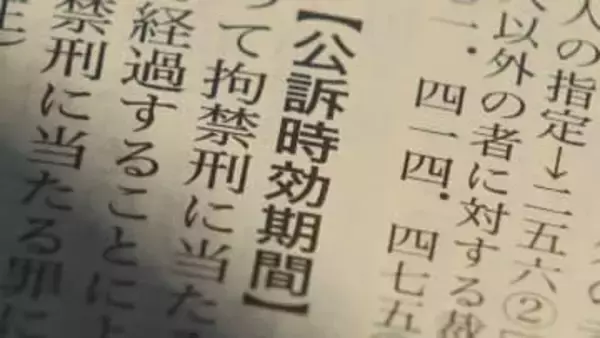 人の指定→二五六②
以外の者に対する裁
一. 四一四. 四七五
【公訴時効期間】
って拘禁刑に当た
経過することによ
禁刑に当たる罪に